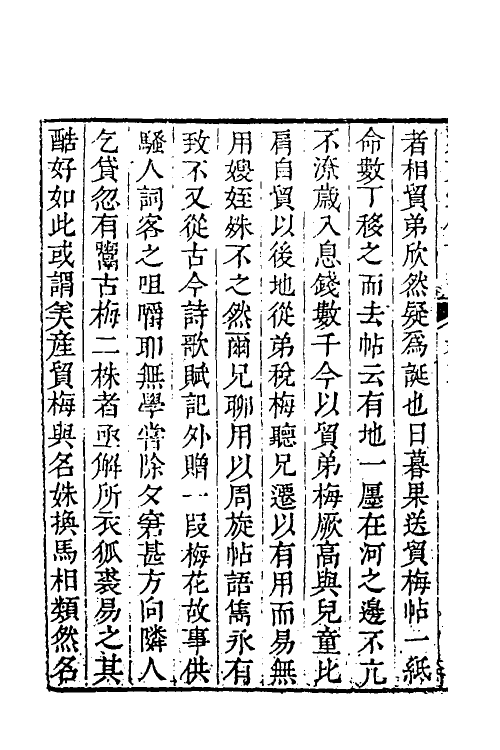 者相貿弟欣然疑爲誕也日暮果送貿梅帖一紙
命數丁移之而去帖云有地一廛在河之邊不亢
不潦歲入息錢數千今以貿弟梅厥高與兒童比
肩自貿以後地從弟稅梅聽兄遷以有用而易無
用嫂姪姝不之然爾兄聊用以周旋帖語雋永有
致不又從古今詩歌賦記外贈一段梅花故事供
騷人詞客之咀嚼耶無學嘗除夕窘甚方向隣人
乞貸忽有鬻古梅二株者亟解所衣狐裘易之其
酷好如此或謂矣產貿梅與名姝換馬相類然名